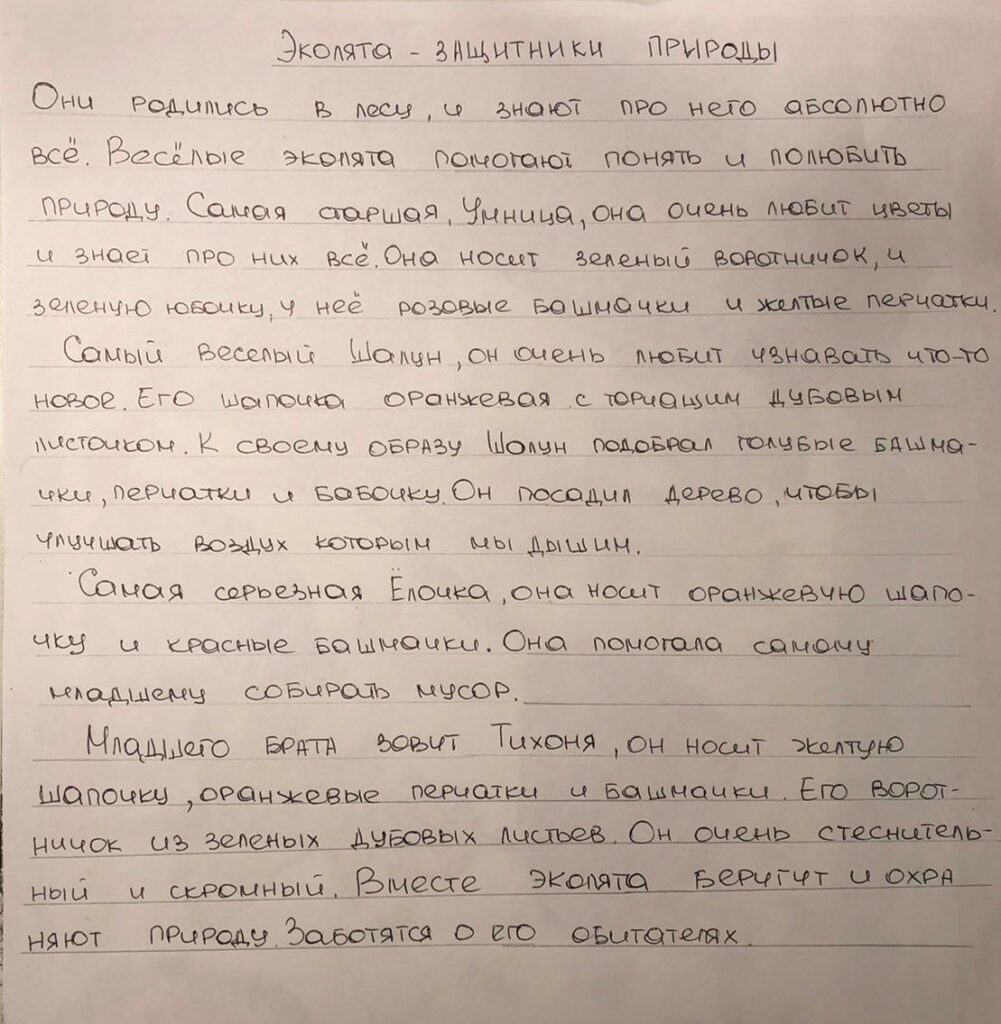 Эколята - защитники природы
Они родились в лесу, и знают про него абсолютно
всё. Весёлые эколята помогают понять и полюбить
природу. Самая старшая, Умница, она очень любит цветы
и знает про них всё. Она носит зеленый воротничок, и
зеленую юбочку, у неё розовые башмачки и желтые перчатки.
Самый веселый Шалун, он очень любит узнавать что-то
новое. Его шапочка оранжевая с торчащим дубовым
листочком. К своему образу Шалун подобрал голубые башма-
чки, перчатки и бабочку. Он посадил дерево, чтобы
улучшать воздух которым мы дышим.
Самая серьезная Ёлочка, она носит оранжевую шапо-
чку и красные башмачки. Она помогала самому
младшему собирать мусор.
Младшего брата зовит Тихоня, он носит желтую
шапочку, оранжевые перчатки и башмачки. Его ворот-
ничок из зеленых дубовых листьев. Он очень стеснитель-
ный и скромный. Вместе эколята беругут и охра
няют природу. Заботятся о его обитателях.